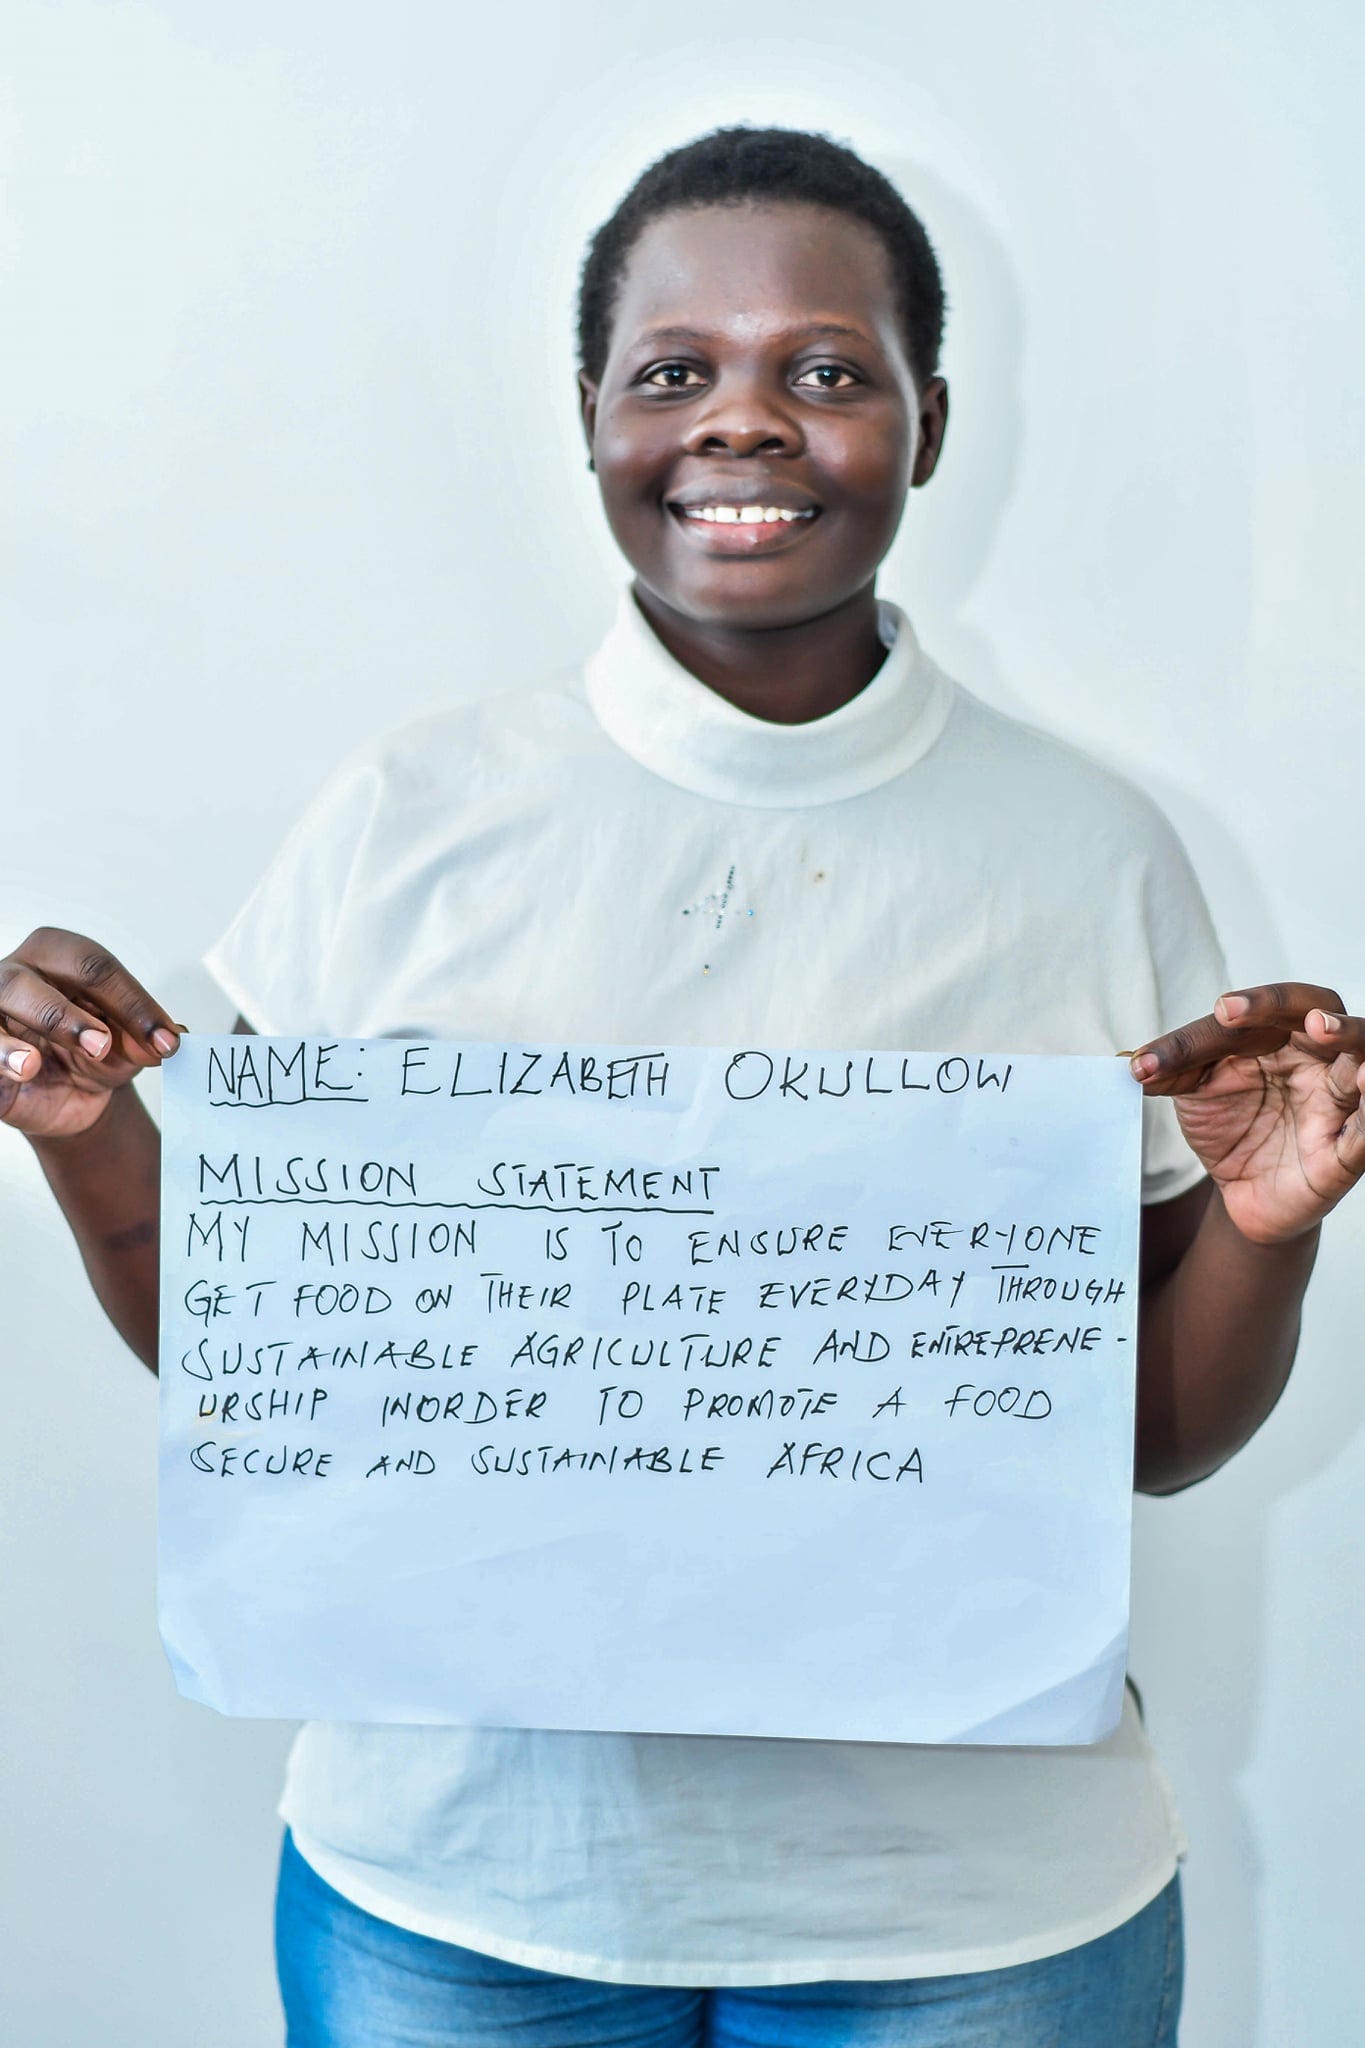 NAME: ELIZABETH OKULLOW
MISSION STATEMENT
MY MISSION IS TO ENSURE EVERYONE
GET FOOD ON THEIR PLATE EVERYDAY THROUGH
SUSTAINABLE AGRICULTURE AND ENTREPRENE-
URSHIP INORDER TO PROMOTE A FOOD
SECURE AND SUSTAINABLE AFRICA